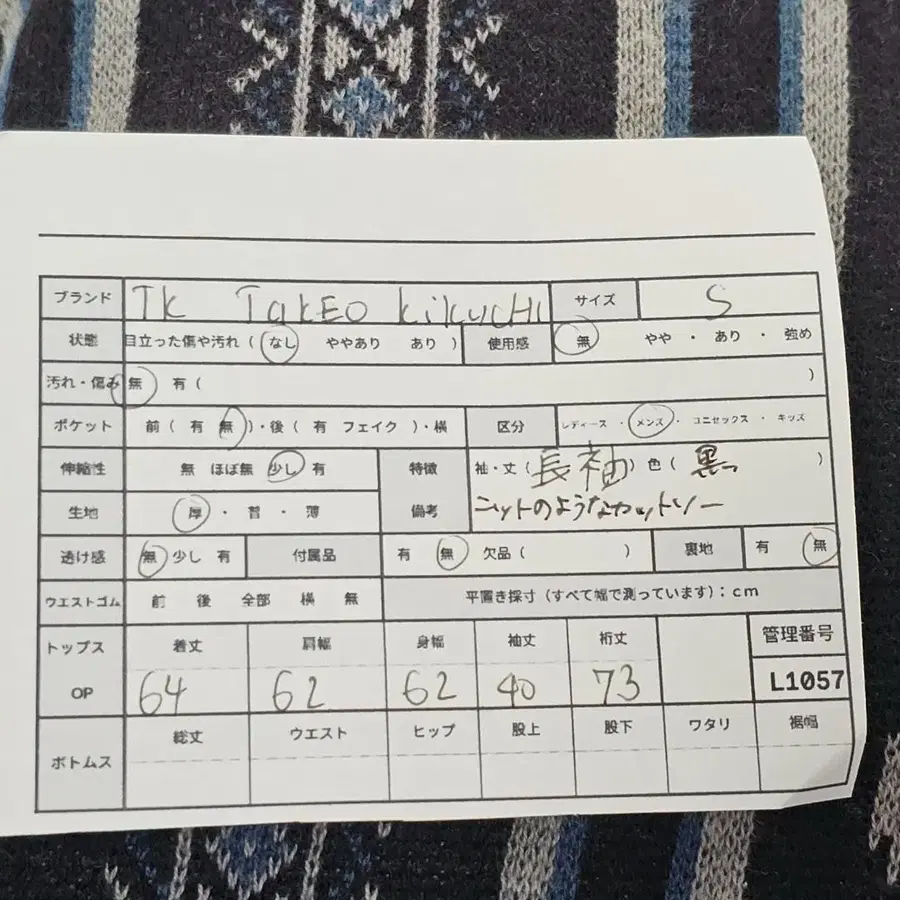 ブランド TK TakEO kikuchi サイズ S
状態 目立った傷や汚れ ( なし ややあり あり ) 使用感 無 やや ・ あり ・ 強め
汚れ・傷み 無 有 ( )
ポケット 前 ( 有 無 )・後 ( 有 フェイク )・横 区分 レディース ・ メンズ ・ ユニセックス ・ キッズ
伸縮性 無 ほぼ無 少し 有 特徴 袖・丈 ( 長袖 ) 色 ( 黒 )
生地 厚 ・ 普 ・ 薄 備考 ニットのようなカットソー
透け感 無 少し 有 付属品 有 無 欠品 ( ) 裏地 有 無
ウエストゴム 前 後 全部 横 無 平置き採寸 (すべて幅で測っています) : cm
トップス 着丈 肩幅 身幅 袖丈 裄丈 管理番号
OP 64 62 62 40 73 L1057
ボトムス 総丈 ウエスト ヒップ 股上 股下 ワタリ 裾幅